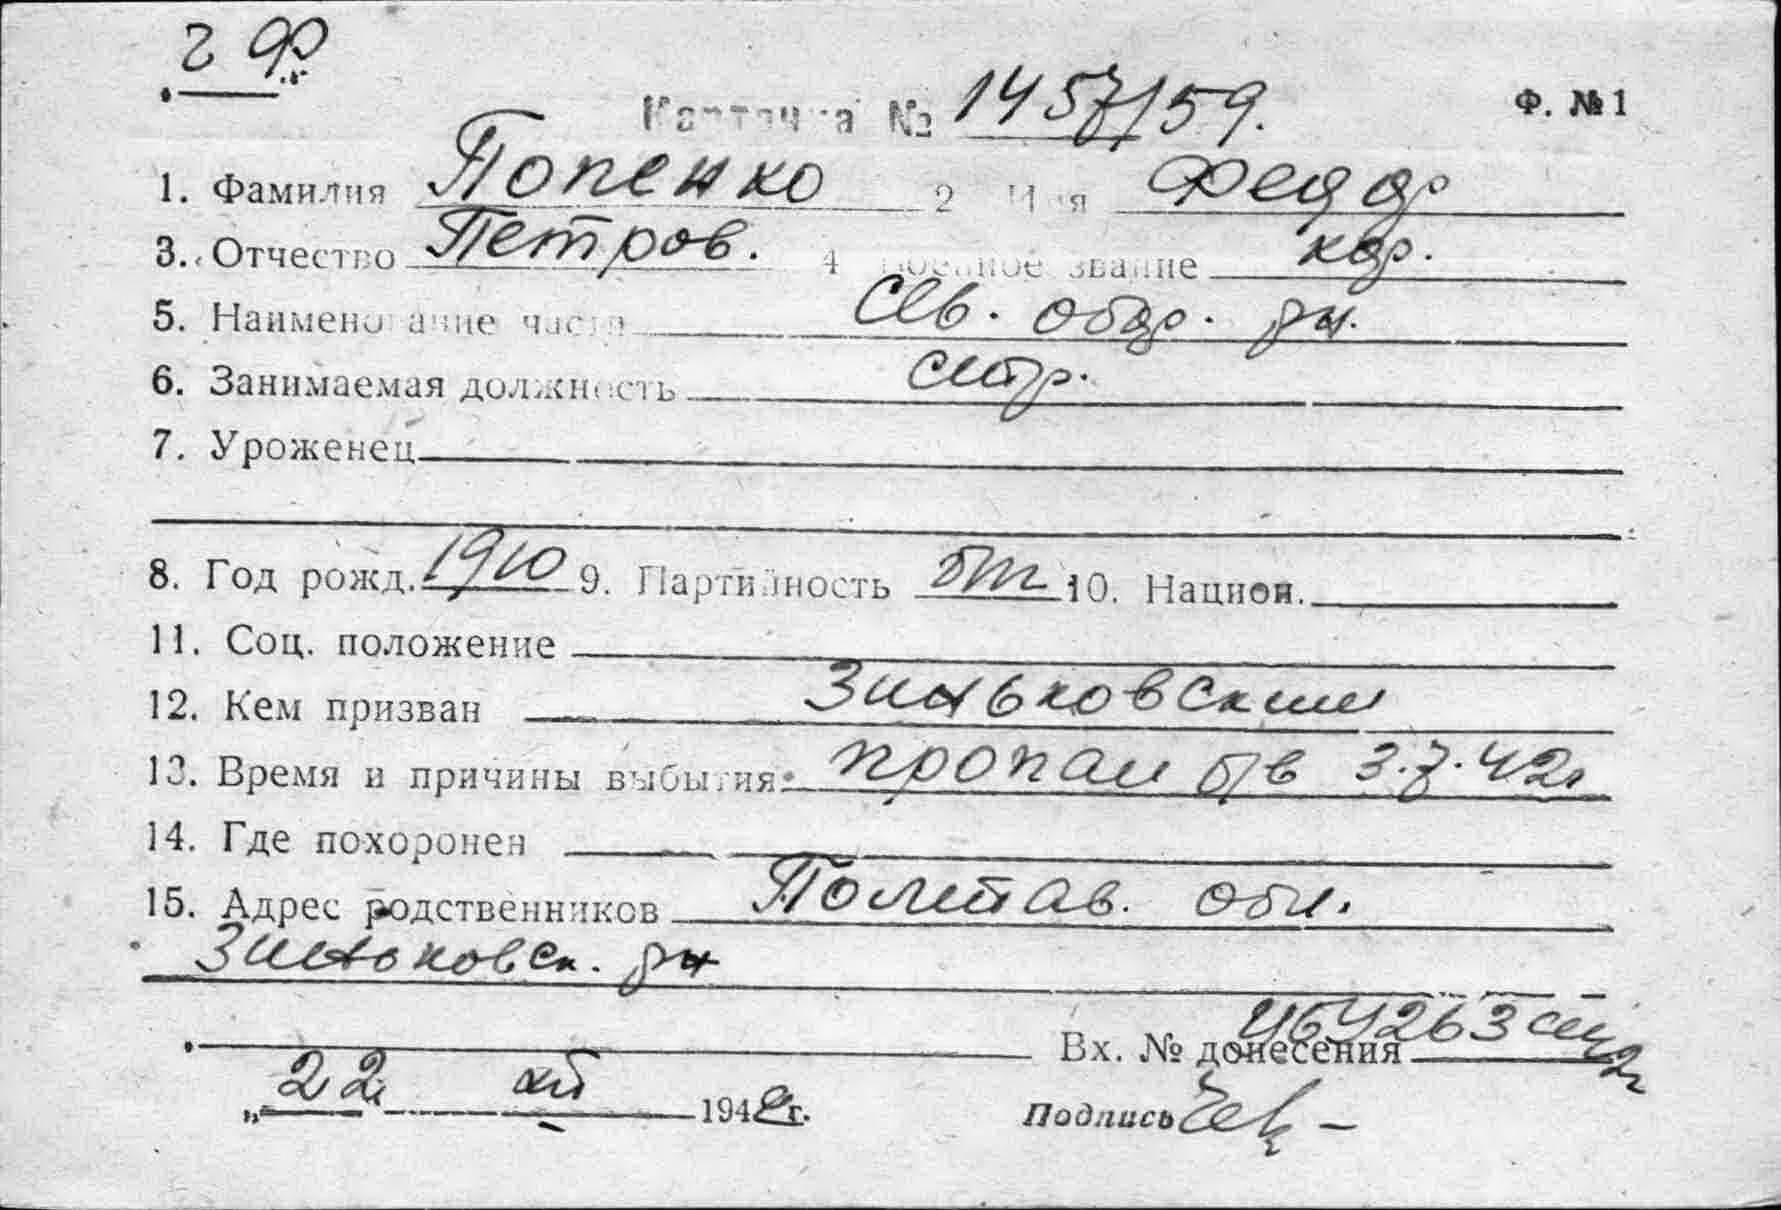 г Ф
Карточка № 1457/59. Ф. №1
1. Фамилия Попенко 2 Имя Федор
3. Отчество Петров. 4 Военное звание кр.
5. Наименование части Сев. обор. рн.
6. Занимаемая должность стр.
7. Уроженец
8. Год рожд. 1910 9. Партийность б/п 10. Национ.
11. Соц. положение
12. Кем призван Зиньковским
13. Время и причины выбытия: пропал б/в 3.7.42г
14. Где похоронен
15. Адрес родственников Полтав. обл.
Зиньковск. рн
Вх. № донесения
„22 1948г.
Подпись